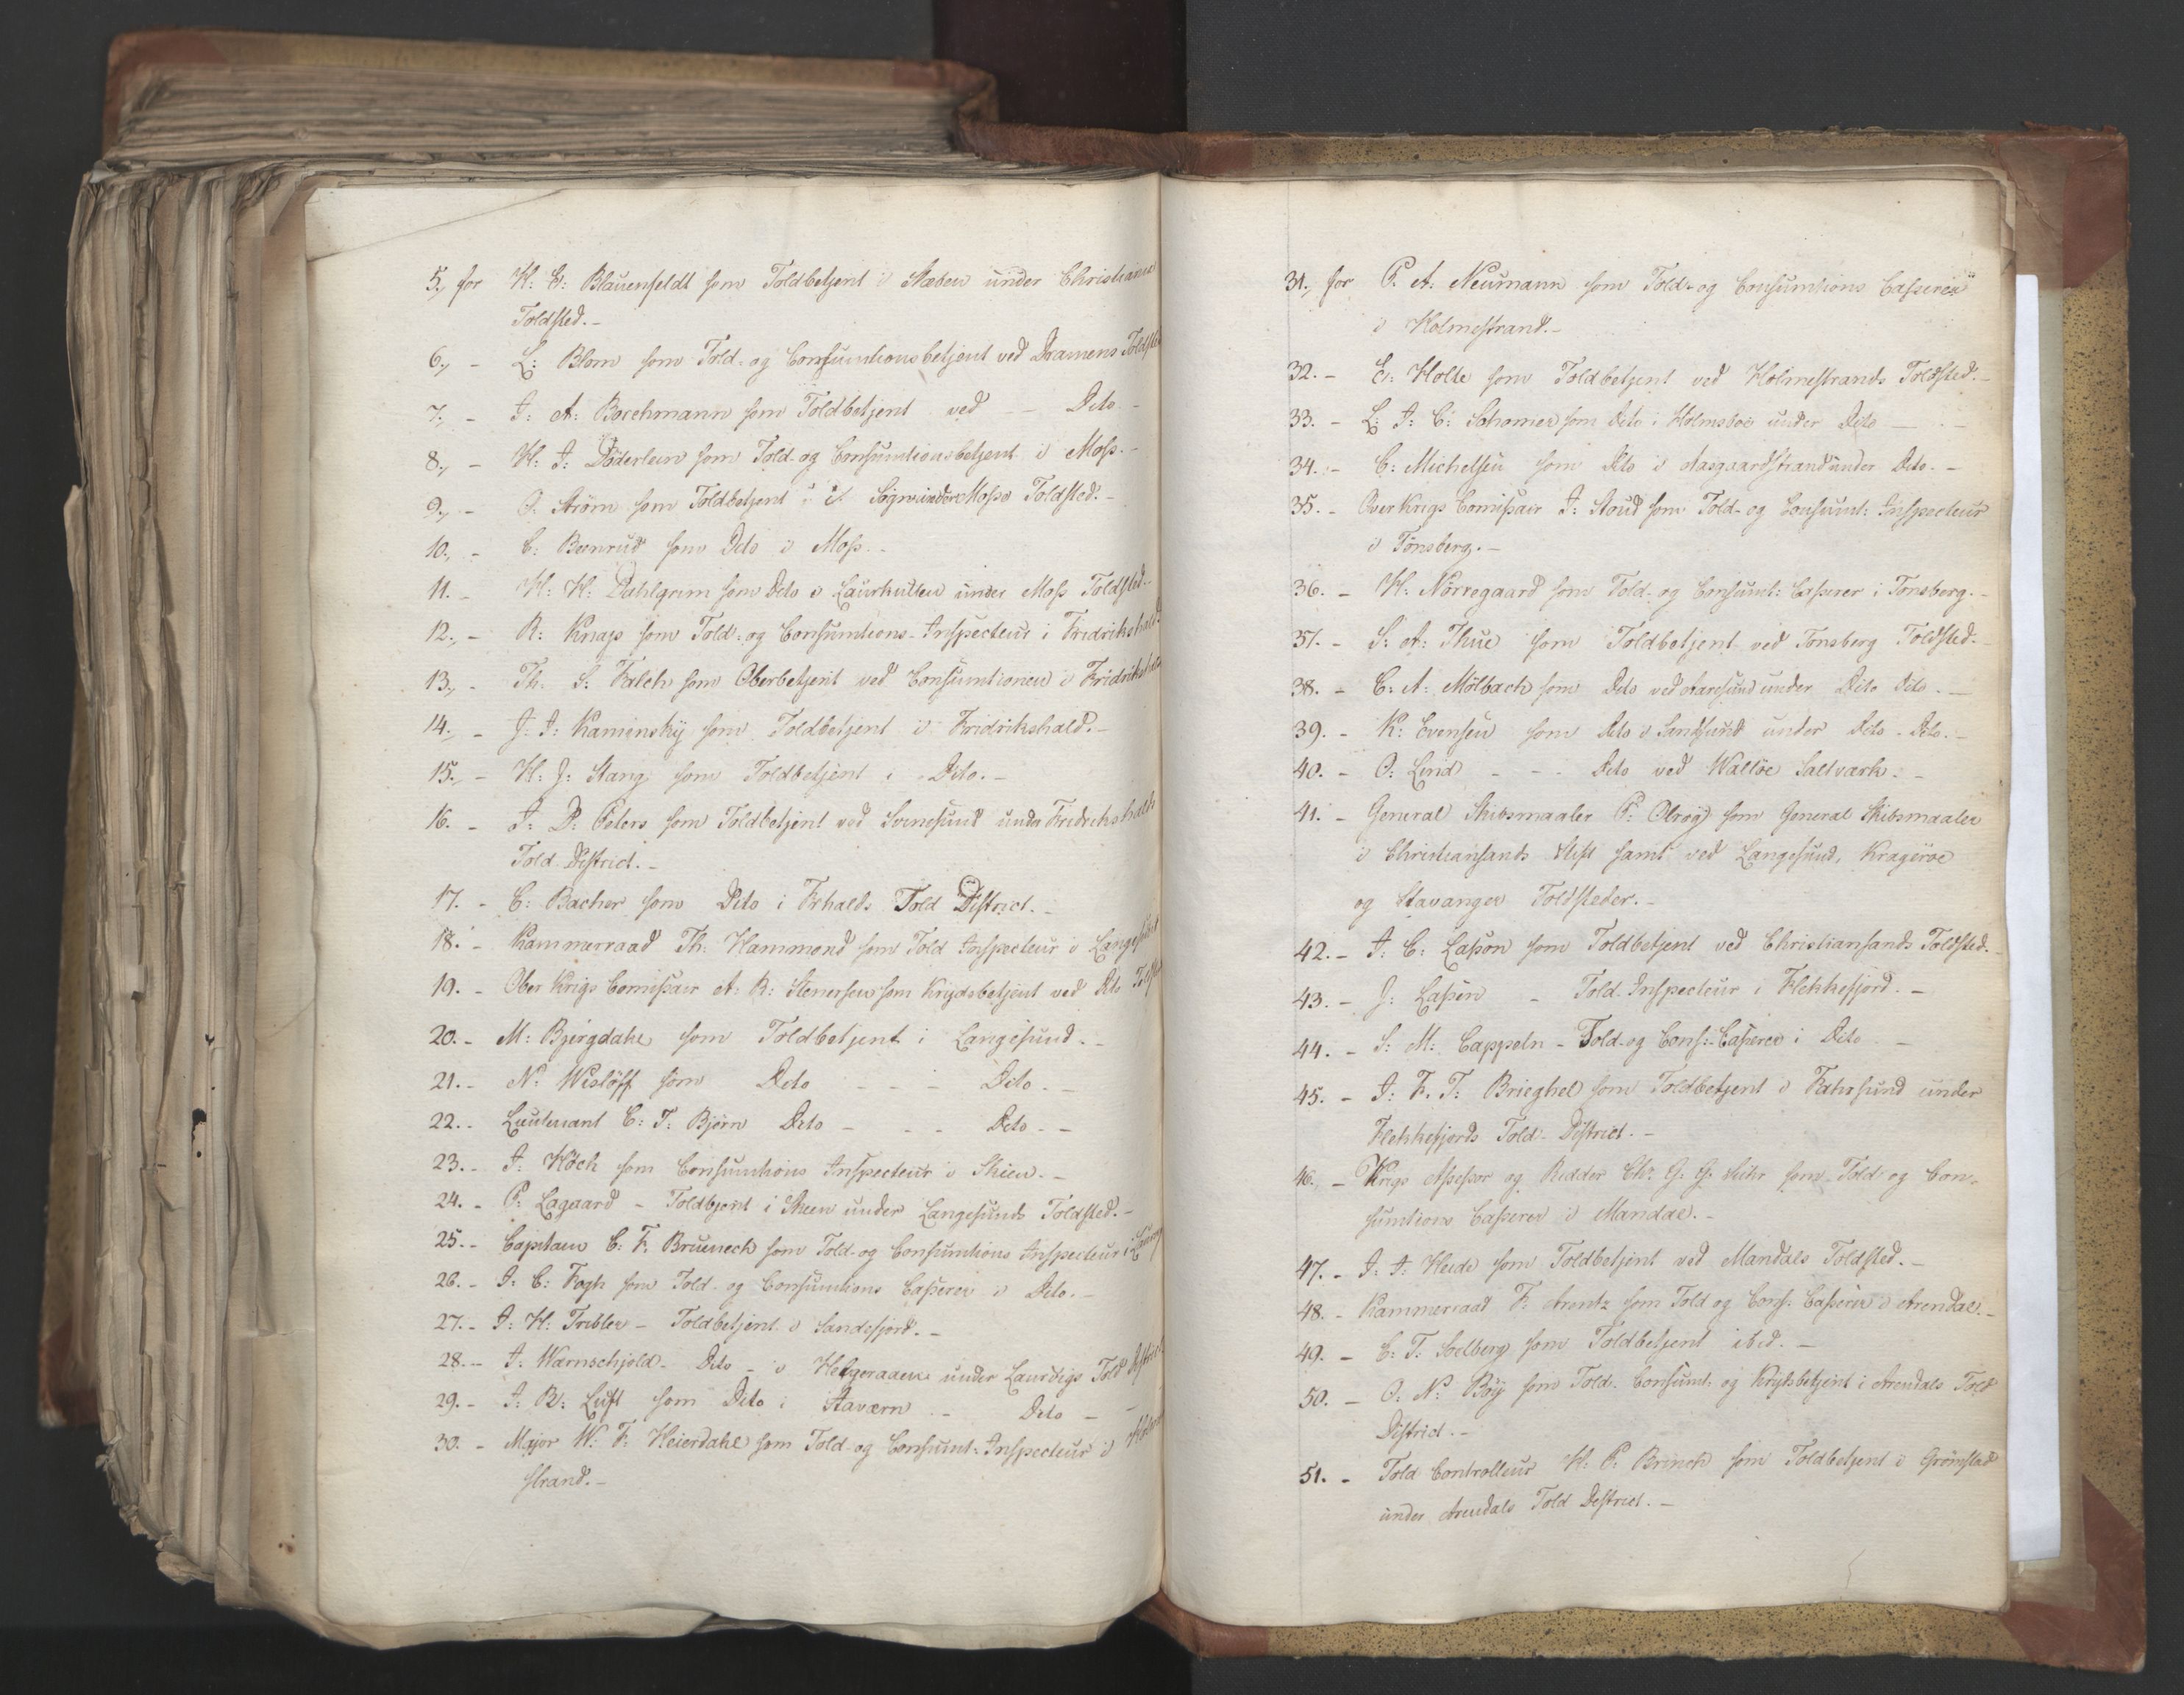 5., for H: E: Blauenfeldt som Toldbetjent i Næben under Christiania
Toldsted.-
6., - L: Blom som Told- og Consumtionsbetjent ved Dramens Toldsted
7., - I: A: Borchmann som Toldbetjent ved - Dito -
8., - H: I: Döderlein som Told- og Consumtionsbetjent i Moss.-
9., - O. Strøm som Toldbetjent i Sogn under Mosse Toldsted.-
10., - C: Beenrud som Dito i Moss.-
11. - H: H: Dahlgrim som Dito i Laurkullen under Moss Toldsted.-
12., - R: Knap som Told- og Consumtions-Inspecteur i Fridrikshald
13., - Th. S: Falch som Oberbetjent ved Consumtionen i Fridrikshald
14., - J. I: Kaminsky som Toldbetjent i Fridrikshald.-
15., - H: J: Stang som Toldbetjent i Dito.-
16. - I: D: Peters som Toldbetjent ved Svinesund under Fridrikshalds
Told District.-
17. - C: Bacher som Dito i Frhalds Told District.-
18. - Kammerraad Th: Hammond som Told Inspecteur i Langesund
19. - Ober Krigs Comissair A: R: Stenersen som Krydsbetjent ved Dito Toldsted
20. - M: Bjergdahl som Toldbetjent i Langesund.-
21. - N: Wisløff som Dito - - - Dito.-
22. - Lieutenant C: T: Bjørn Dito - - - Dito.-
23. - I: Høch som Consumtions Inspecteur i Skien.-
24. - P: Lagaard - Toldbtjent i Skeen under Langesunds Toldsted.-
25. - Capitain C: F. Bruenech som Told- og Consumtions Inspecteur i Laurvig
26. - I: C: Fogh som Told- og Consumtions Casserer i Dito.-
27. - I: H: Tribler - Toldbetjent i Sandefjord.-
28. - I: Wærnschjold - Dito - i Helgeraaen under Laurvigs Told District
29. - I: B: Luft som Dito i Staværn - Dito - -
30. - Major W: F: Heierdahl som Told- og Consumt: Inspecteur i Holme
strand.-
31., for P. A: Neumann som Told- og Consumtions Casserer
i Holmestrand.-
32. - E: Holte som Toldbetjent ved Holmestrands Toldsted.-
33. - L: I: C: Schomer som Dito i Holmsboe under Dito - -
34. - C: Michelsen som Dito i Aasgaardstrand under Dito.-
35. - Over Krigs Comissair I: Stoud som Told- og Consumt: Inspecteur
i Tønsberg.-
36. - H: Nørregaard som Told- og Consumt: Casserer i Tønsberg.-
37. - S: A: Thue som Toldbetjent ved Tønsberg Toldsted.-
38. - C: A: Mølbach som Dito ved Aaresund under Dito Dito.-
39. - K: Evensen som Dito i Sandsund under Dito - Dito.-
40. - O: Lind - - - Dito ved Walløe Saltværk.-
41. - General Skibsmaaler P: Olrog som General Skibsmaaler
i Christiansands Stift samt ved Langesund, Kragerøe
og Stavanger Toldsteder.-
42. - I: C: Lasson som Toldbetjent ved Christiansands Toldsted.
43. - J: Lassen - Told-Inspecteur i Flekkefjord.-
44. - S: M: Cappeln - Told- og Cons: Casserer i Dito -
45. - I: F. T: Brieghel som Toldbetjent i Fahrsund under
Flekkefjords Told-District.-
46. - Krigs Assessor og Ridder Chr: G: G: Suhr som Told og Con-
sumtions Casserer i Mandal.-
47. - I: I: Heide som Toldbetjent ved Mandals Toldsted.-
48. - Kammerraad F: Arentz som Told og Cons: Casserer i Arendal.-
49. - C: T: Soelberg som Toldbetjent ibid.-
50. - O: N: Bøy som Told- Consumt: og Krydsbetjent i Arendals Told
District.-
51. - Told Controlleur H: P: Brinch som Toldbetjent i Grømstad
under Arendals Told District.-